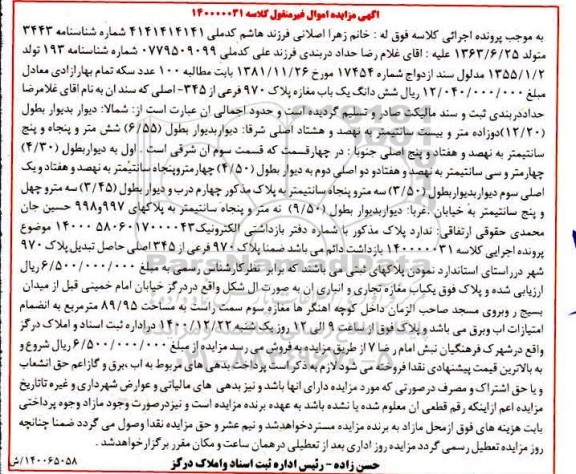 آگهی مزایده اموال غیرمنقول کلاسه ۱۴۰۰۰۰۰۳۱
به موجب پرونده اجرائی کلاسه فوق له : خانم زهرا اصلانی فرزند هاشم کدملی ۴۱۴۱۴۱۴۱۴۱ شماره شناسنامه ۳۴۴۳
متولد ۱۳۶۳/۶/۲۵ علیه : اقای غلام رضا حداد دربندی فرزند علی کدملی ۰۷۷۹۵۰۹۰۹۹ شماره شناسنامه ۱۹۳ تولد
۱۳۵۵/۱/۲ مدلول سند ازدواج شماره ۱۷۴۵۴ مورخ ۱۳۸۱/۱۱/۲۶ بابت مطالبه ۱۰۰ عدد سکه تمام بهارازادی معادل
مبلغ ۱۲/۰۴۰/۰۰۰/۰۰۰ ریال شش دانگ یک باب مغازه پلاک ۹۷۰ فرعی از ۳۴۵- اصلی که سند ان به نام اقای غلامرضا
حداددربندی ثبت و سند مالکیت صادر و تسلیم گردیده است و حدود اجمالی ان عبارت است از: شمالا: دیوار بدیوار بطول
(۱۲/۲۰)دوازده متر و بیست سانتیمتر به نهصد و هشتاد اصلی شرقا: دیواربدیوار بطول (۶/۵۵) شش متر و پنجاه و پنج
سانتیمتر به نهصد و هفتاد و پنج اصلی جنوبا : در چهارقسمت که قسمت سوم ان شرقی است . اول به دیواربطول (۴/۳۰)
چهارمتر و سی سانتیمتر به نهصد و هفتادو دو اصلی دوم به دیوار بطول (۴/۵۰) چهارمتروپنجاه سانتیمتر به نهصد و هفتاد و یک
اصلی سوم دیواربدیواربطول (۳/۵۰) سه مترو پنجاه سانتیمتر به پلاک مذکور چهارم درب و دیوار بطول (۳/۴۵) سه مترو چهل
و پنج سانتیمتر به خیابان .غربا: دیواربدیوار بطول (۹/۵۰) نه متر و پنجاه سانتیمتر به پلاکهای ۹۹۷و۹۹۸ حسین جان
محمدی حقوقی ارتفاقی: ندارد پلاک مذکور با شماره دفتر بازداشتی الکترونیک۱۴۰۰۰۵۸۰۶۰۱۷۰۰۰۰۴۳ موضوع
پرونده اجرایی کلاسه ۱۴۰۰۰۰۰۳۱ بازداشت دائم می باشد ضمنا پلاک ۹۷۰ فرعی از ۳۴۵ اصلی حاصل تبدیل پلاک ۹۷۰
شهر درراستای استاندارد نمودن پلاکهای ثبتی می باشند که برابر نظرکارشناس رسمی به مبلغ ۶/۵۰۰/۰۰۰/۰۰۰ ریال
ارزیابی شده و پلاک فوق یکباب مغازه تجاری و انباری ان به صورت ال شکل واقع دردرگز خیابان امام خمینی قبل از میدان
بسیج ر وبروی مسجد صاحب الزمان داخل کوچه اهنگر ها مغازه سوم سمت راست به مساحت ۸۹/۹۵ مترمربع به انضمام
امتیازات اب وبرق می باشد و پلاک فوق از ساعت ۹ الی ۱۲ روز یک شنبه ۱۴۰۰/۱۲/۲۲ دراداره ثبت اسناد و املاک درگز
واقع درشهرک فرهنگیان نبش امام رضا ۷ از طریق مزایده به فروش می رسد مزایده از مبلغ ۶/۵۰۰/۰۰۰/۰۰۰ ریال شروع و
به بالاترین قیمت پیشنهادی نقدا فروخته می شود لازم به ذکر است پرداخت بدهی های مربوط به اب ،برق و گازاعم حق انشعاب
و یا حق اشتراک و مصرف درصورتی که مورد مزایده دارای انها باشد و نیز بدهی های مالیاتی و عوارض شهرداری و غیره تاتاریخ
مزایده اعم ازاینکه رقم قطعی ان معلوم شده یا نشده باشد به عهده برنده مزایده است و نیزدرصورت وجود مازاد وجوه پرداختی
بابت هزینه های فوق ازمحل مازاد به برنده مزایده مسترد خواهدشد و نیم عشر و حق مزایده نقدا وصول می گردد ضمنا چنانچه
روز مزایده تعطیل رسمی گردد مزایده روز اداری بعد از تعطیلی درهمان ساعت و مکان مقرر برگزار خواهدشد .
حسن زاده - رئیس اداره ثبت اسناد واملاک درگز
۱۴۰۰۶۵۰۵۸/ش